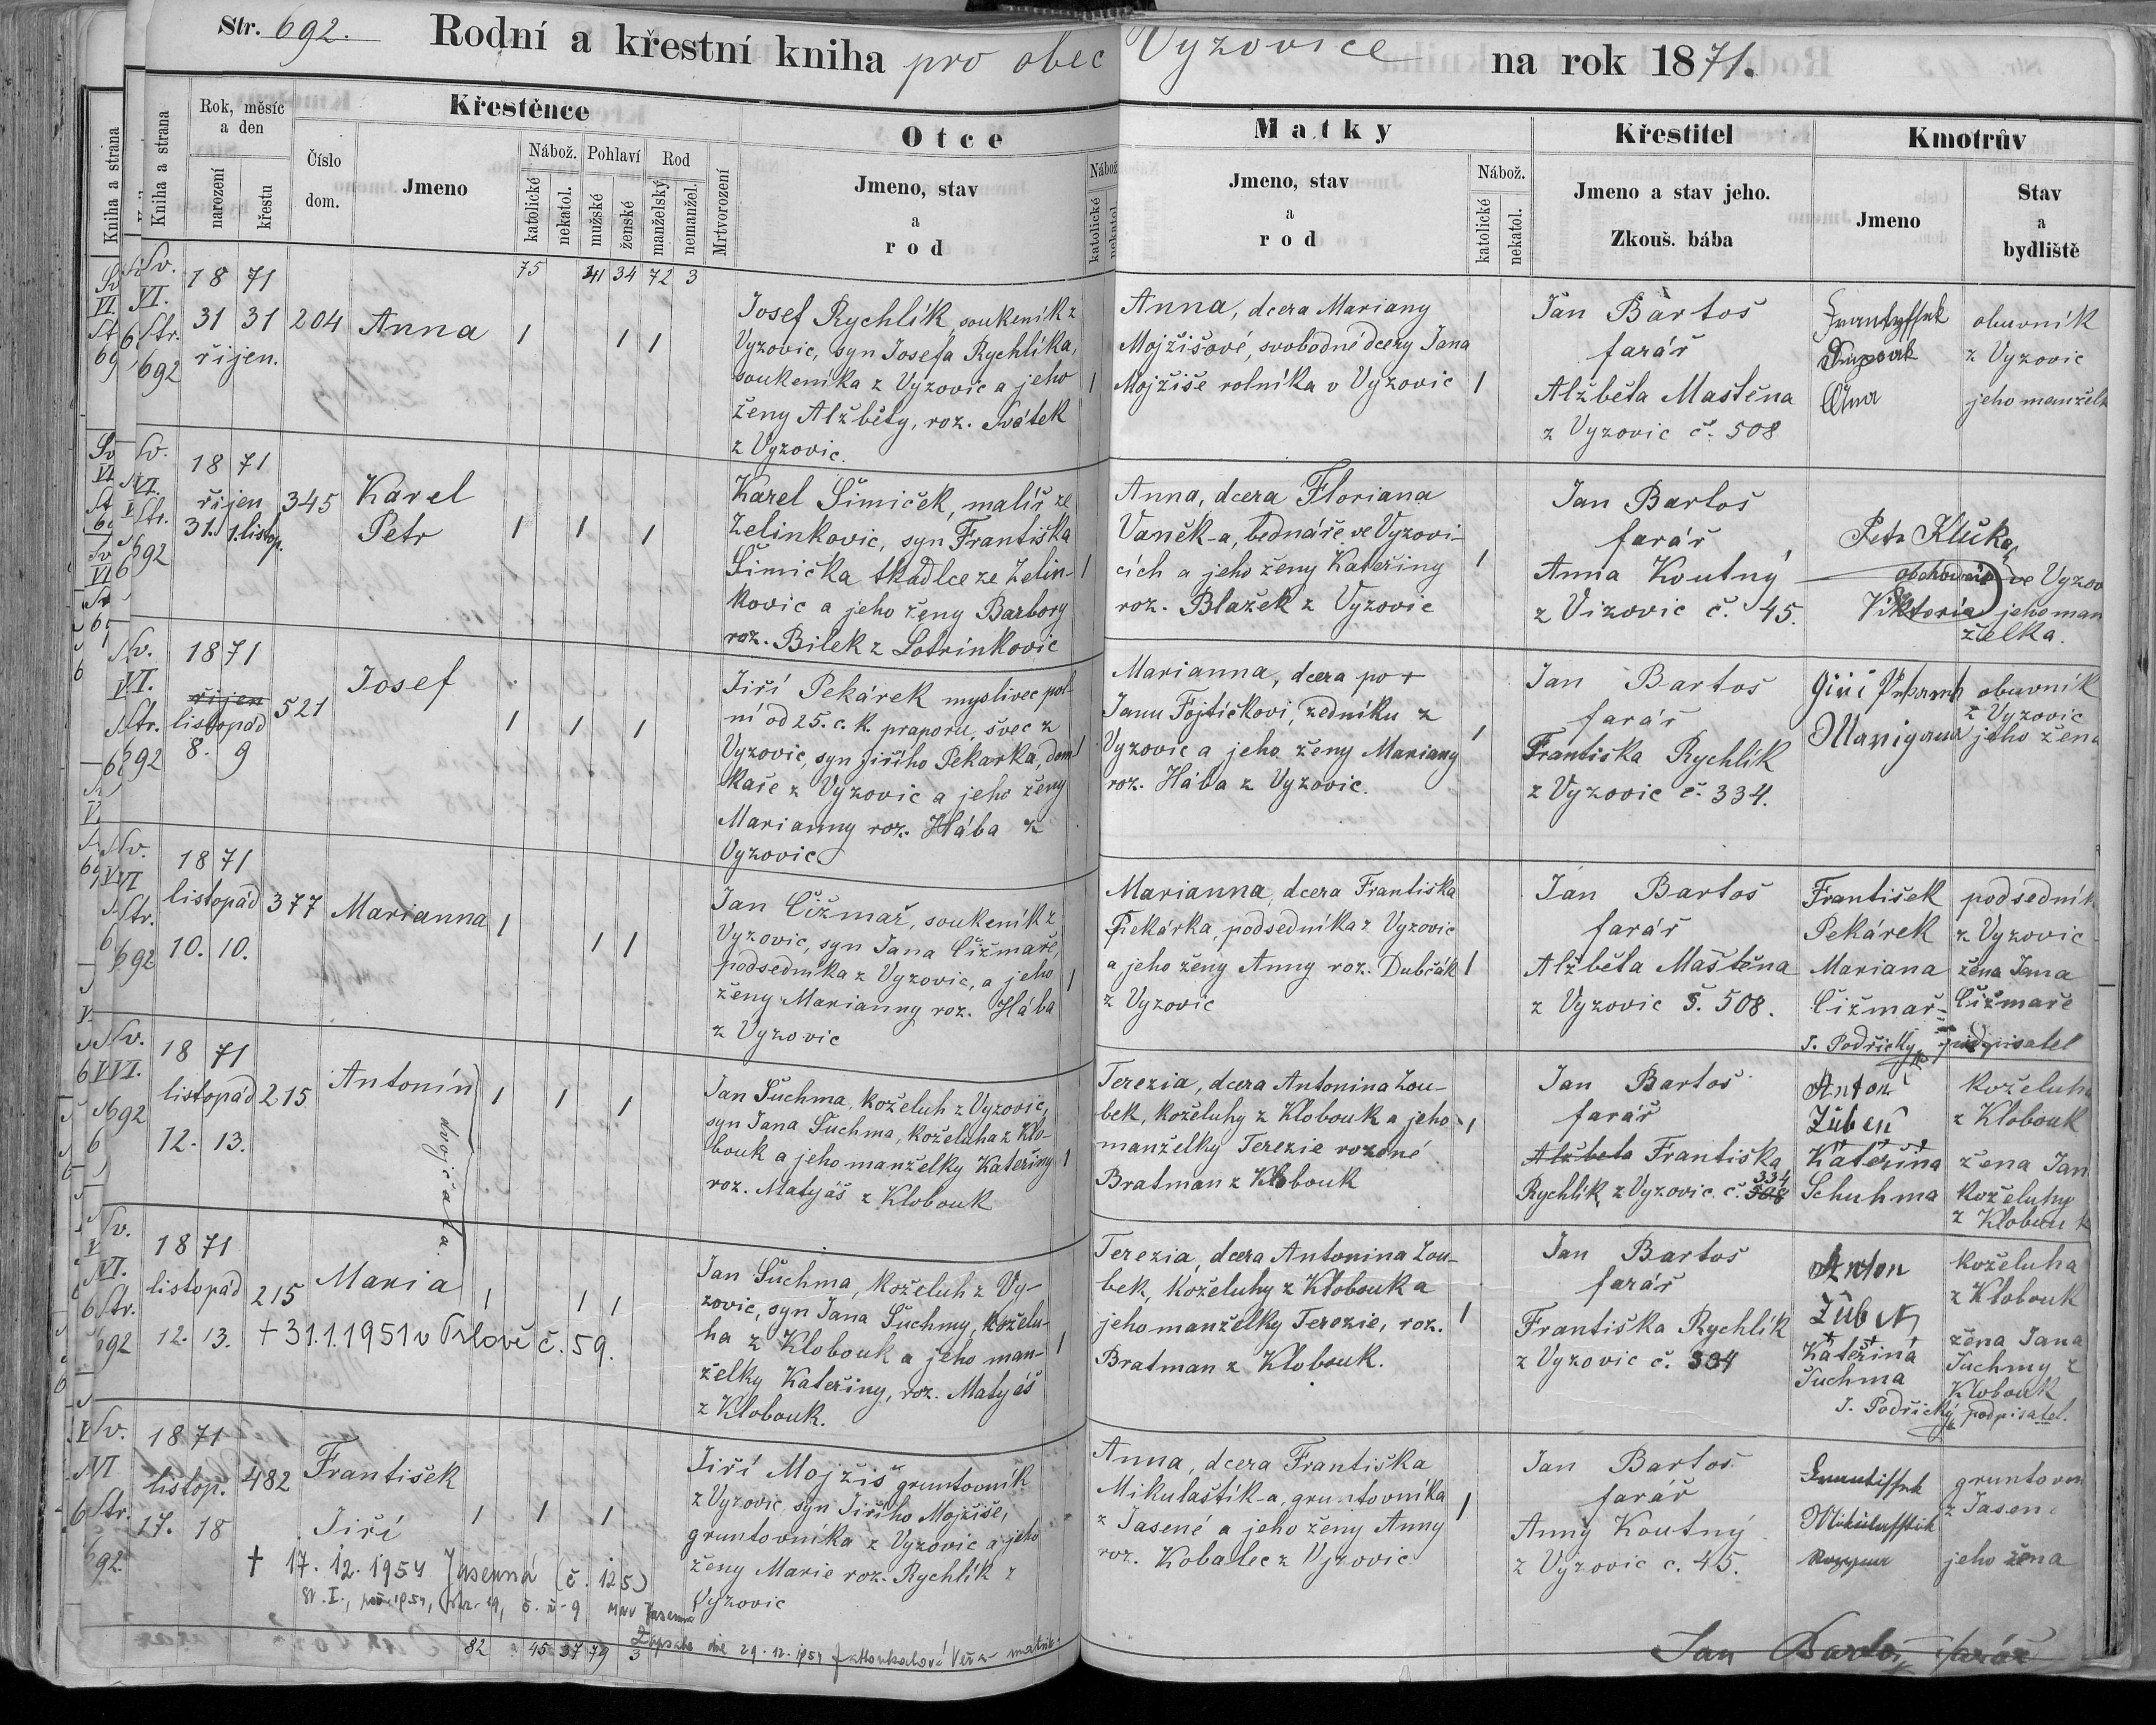 Str. 692. Rodní a křestní kniha pro obec Vyzovice na rok 1871.
Kniha a strana
Kniha a strana
Rok, měsíc a den
narození
křestu
Číslo dom.
Křestěnce
Jmeno
Nábož.
katolické
nekatol.
Pohlaví
mužské
ženské
Rod
manželský
nemanžel.
Mrtvorození
Otce
Jmeno, stav
a
rod
Nábož.
katolické
nekatol.
Matky
Jmeno, stav
a
rod
Nábož.
katolické
nekatol.
Křestitel
Jmeno a stav jeho.
Zkouš. bába
Kmotrův
Jmeno
Stav
a
bydliště
75 41 34 72 3
Sv.
VI.
Str.
692
18 71
31 31
říjen.
204
Anna
1 1 1
Josef Rychlík, soukeník z
Vyzovic, syn Josefa Rychlíka,
soukeníka z Vyzovic a jeho
ženy Alžběty, roz. Svátek
z Vyzovic.
1
Anna, dcera Mariany
Mojžíšové, svobodné dcery Jana
Mojžíše rolníka v Vyzovic
1
Jan Bartoš
farář
Alžběta Maštěna
z Vyzovic č. 508
Anna
obuvník
z Vyzovic
jeho manželk
Sv.
VI.
Str.
692
18 71
říjen
31. 1. listop.
345
Karel
Petr
1 1 1
Karel Šimiček, malíř ze
Zelinkovic, syn Františka
Šimička tkadlce ze Zelin-
kovic a jeho ženy Barbory
roz. Bilek z Lotrinkovic
1
Anna, dcera Floriana
Vaněk-a, bednáře ve Vyzovi-
cích a jeho ženy Kateřiny
roz. Blažek z Vyzovic
1
Jan Bartoš
farář
Anna Koutný
z Vizovic č. 45.
Petr Klučka,
obchodník ve Vyzov
Viktoria jeho man
želka.
Sv.
VI.
Str.
692
1871
říjen
listopád
8. 9
521
Josef
1 1 1
Jiří Pekárek myslivec pol-
ní od 25. c. k. praporu, švec z
Vyzovic, syn Jiřího Pekarka, dom-
kaře z Vyzovic a jeho ženy
Marianny roz. Hába z
Vyzovic
1
Marianna, dcera po +
Janu Fojtíčkovi, zedníku z
Vyzovic a jeho ženy Mariany
roz. Hába z Vyzovic.
1
Jan Bartoš
farář
Františka Rychlík
z Vyzovic č. 334.
obuvník
z Vyzovic
jeho žena
Sv.
VI
Str.
692
18 71
listopád
10. 10.
377
Marianna
1 1 1
Jan Čižmař, soukeník z
Vyzovic, syn Jana Čižmaře,
podsedníka z Vyzovic, a jeho
ženy Marianny roz. Hába
z Vyzovic
1
Marianna, dcera Františka
Pekárka, podsedníka z Vyzovic
a jeho ženy Anny roz. Dubčák
z Vyzovic
1
Jan Bartoš
farář
Alžběta Maštěna
z Vyzovic č. 508.
František
Pekárek
Mariana
Čižmař
J. Podřický, podpisatel
podsedník
z Vyzovic
žena Jana
Čižmaře
Sv.
VI.
692
18 71
listopád
12. 13.
215
Antonín
dvojčata.
1 1 1
Jan Šuchma, koželuh z Vyzovic,
syn Jana Šuchma, koželuha z Klo-
bouk a jeho manželky Kateřiny
roz. Matyáš z Klobouk
1
Terezia, dcera Antonina Zou-
bek, koželuhy z Klobouk a jeho
manželky Terezie rozené
Bratman z Klobouk
1
Jan Bartoš
farář
Alžběta Františka
334
Rychlík z Vyzovic. č. 508
Anton
Zuben
+ + +
Kateřina
Schuhma
koželuha
z Klobouk
žena Jan
koželuhy
z Klobouk
Sv.
VI.
Str.
692
1871
listopád
12. 13.
215
Maria
1 1 1
+ 31.1.1951 v Orlové č. 59.
Jan Šuchma, koželuh z Vy-
zovic, syn Jana Šuchmy, koželu-
ha z Klobouk a jeho man-
želky Kateřiny, roz. Matyáš
z Klobouk.
1
Terezia, dcera Antonina Zou-
bek, koželuhy z Klobouk a
jeho manželky Terezie, roz.
Bratman z Klobouk.
1
Jan Bartoš
farář
Františka Rychlík
z Vyzovic č. 334
Anton
+ + +
Kateřina
Šuchma
J. Podřický podpisatel.
koželuha
z Klobouk
žena Jana
Šuchmy z
Klobouk
Sv.
VI
Str.
692.
1871
listop.
17. 18
482
František
Jiří
1 1 1
† 17. 12. 1954 Jasenná (č. 125)
sv. I., poř. 1954, str. 19, č. ř. 9 MNV Jasenná
Zapsáno dne 29. 12. 1954
Jiří Mojžiš gruntovník
z Vyzovic syn Jiřího Mojžíše,
gruntovníka z Vyzovic a jeho
ženy Marie roz. Rychlík z
Vyzovic
Anna, dcera Františka
Mikulaštík-a, gruntovníka
z Jasené a jeho ženy Anny
roz. Kobalec z Vyzovic
1
Jan Bartoš
farář
Anny Koutný
z Vyzovic č. 45.
gruntovn
z Jasen
jeho žena
82 45 37 79 3
Jan Bartoš, farář